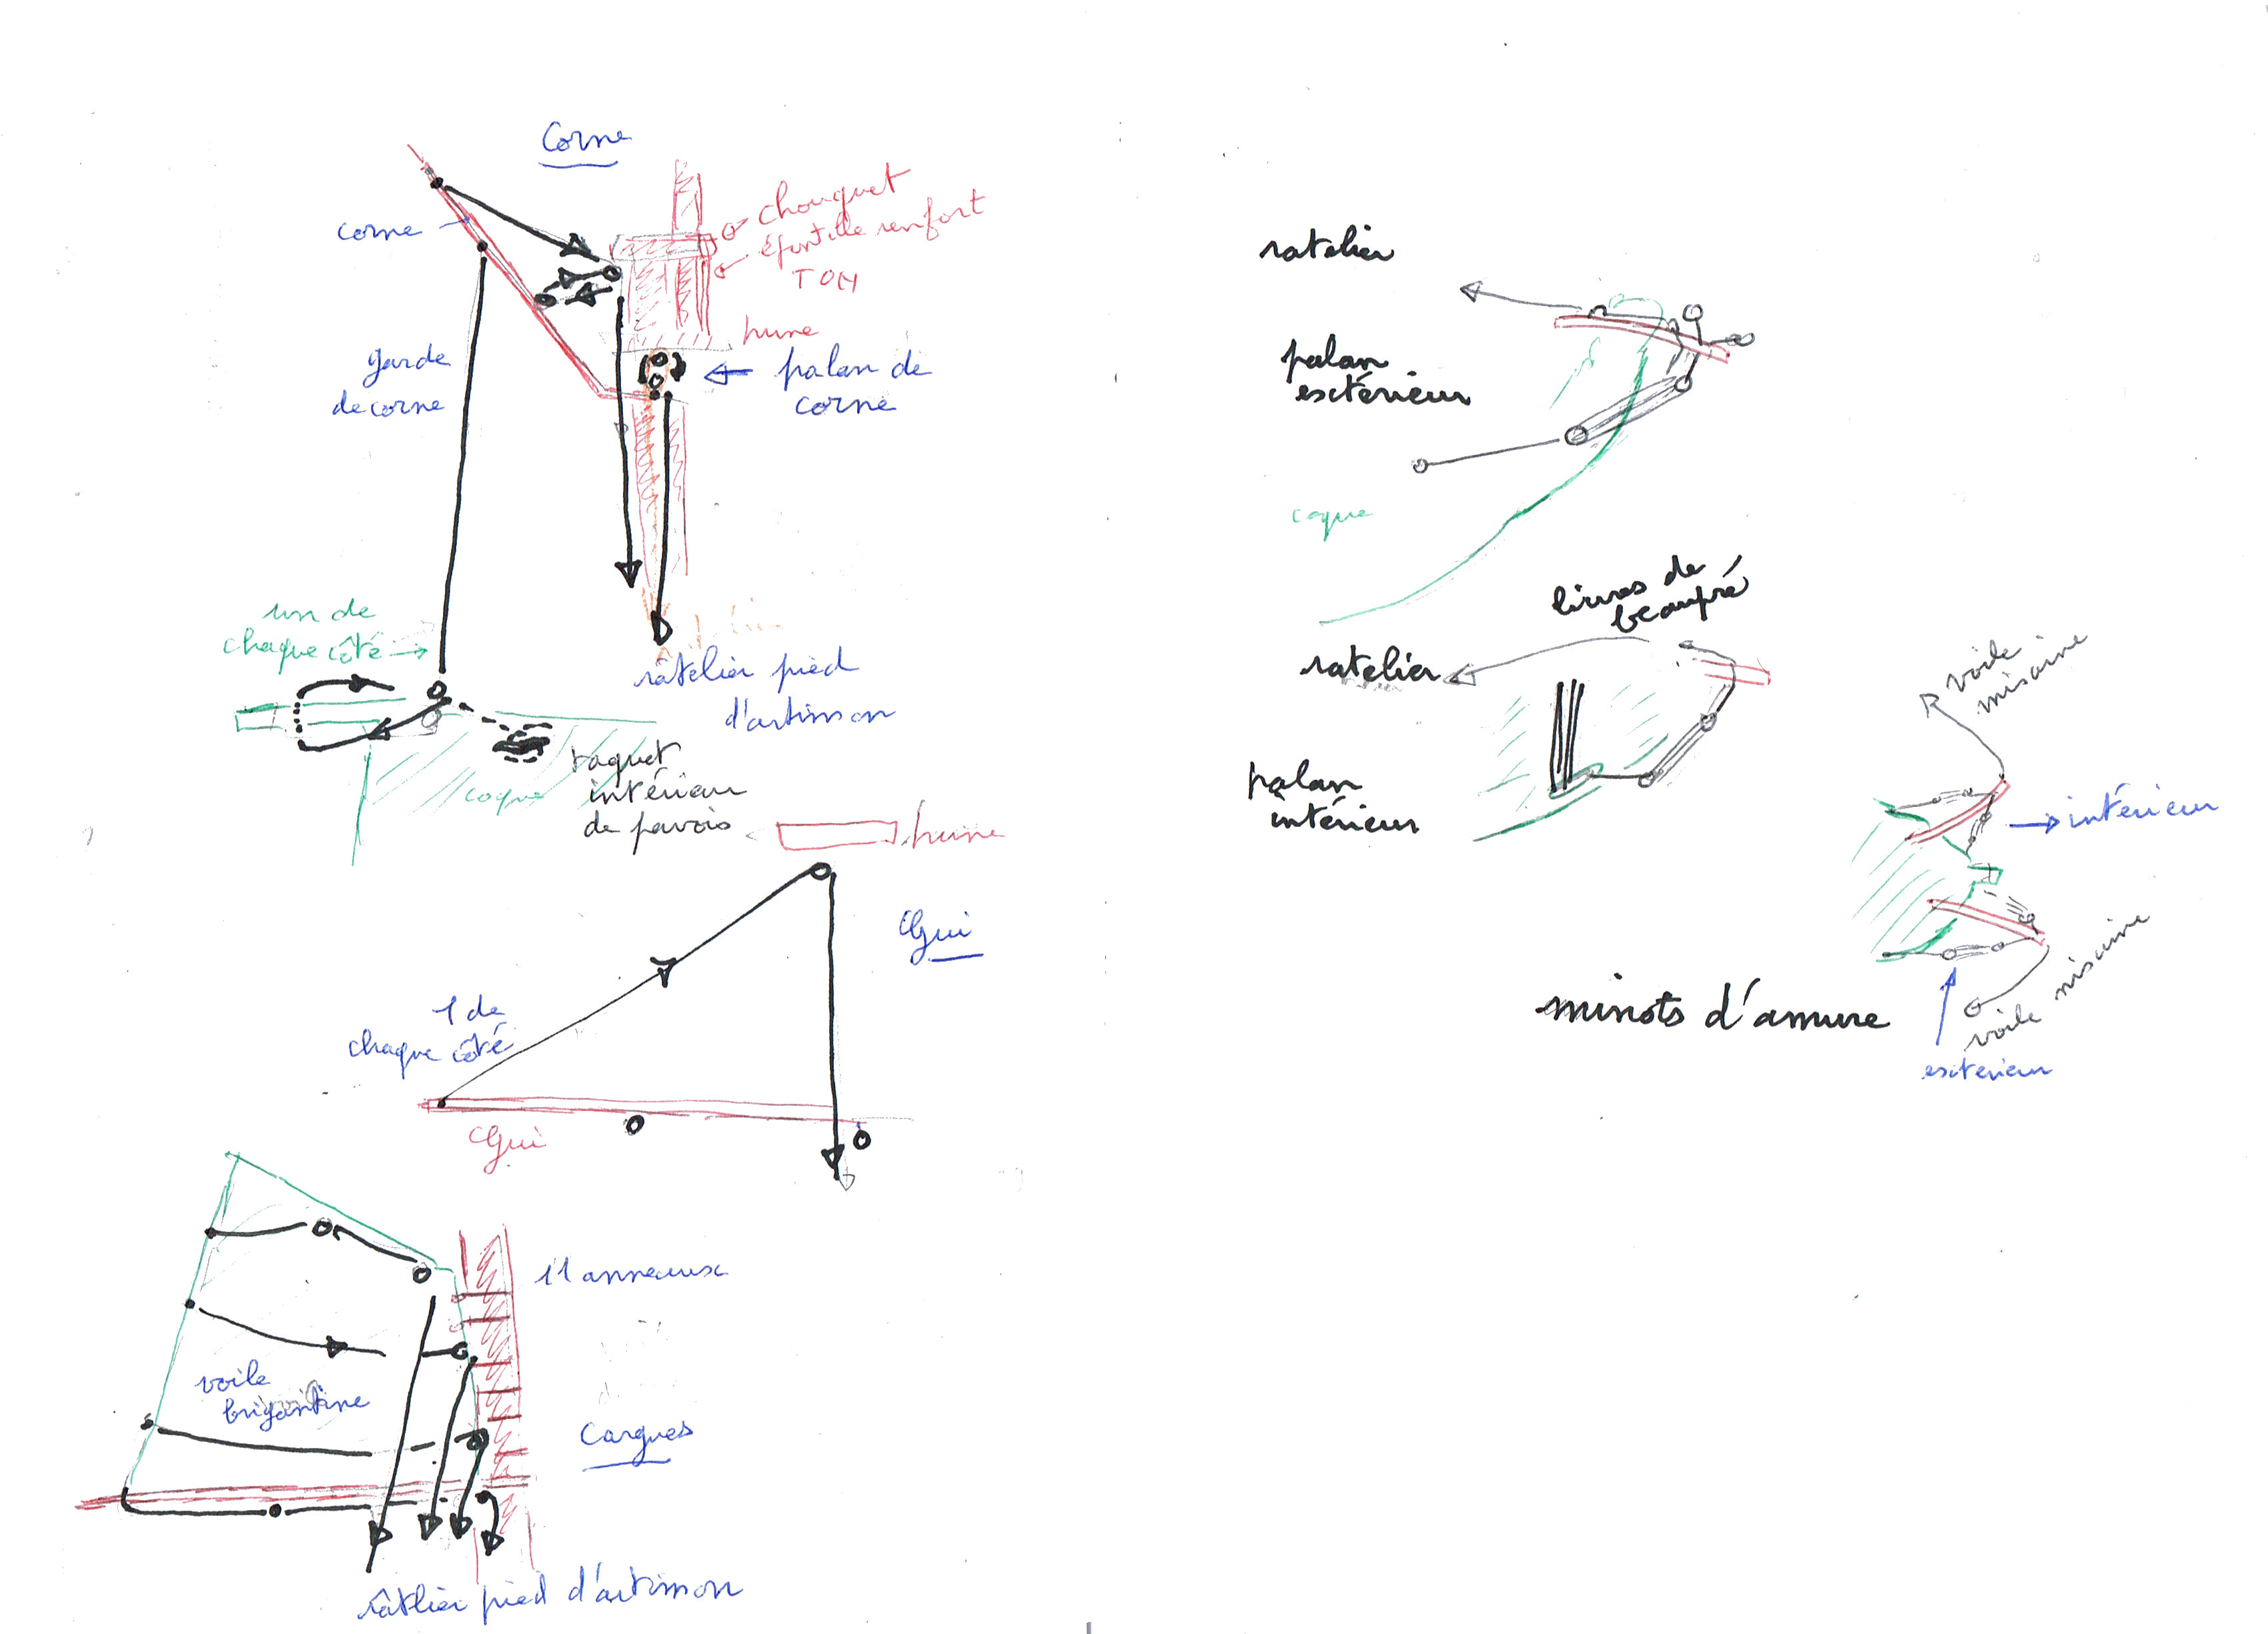 Corne
corne
chouquet
renfort
TOM
hune
garde
de corne
palan de
corne
un de
chaque côté
râtelier pied
d'artimon
taquet
intérieur
de pavois
coque
hune
Gui
1 de
chaque côté
Gui
11 anneaux
voile
brigantine
Cargues
râtlier pied d'artimon
ratelier
palan
extérieur
coque
liures de
beaupré
ratelier
palan
intérieur
voile
misaine
intérieur
minots d'amure
voile misaine
extérieur